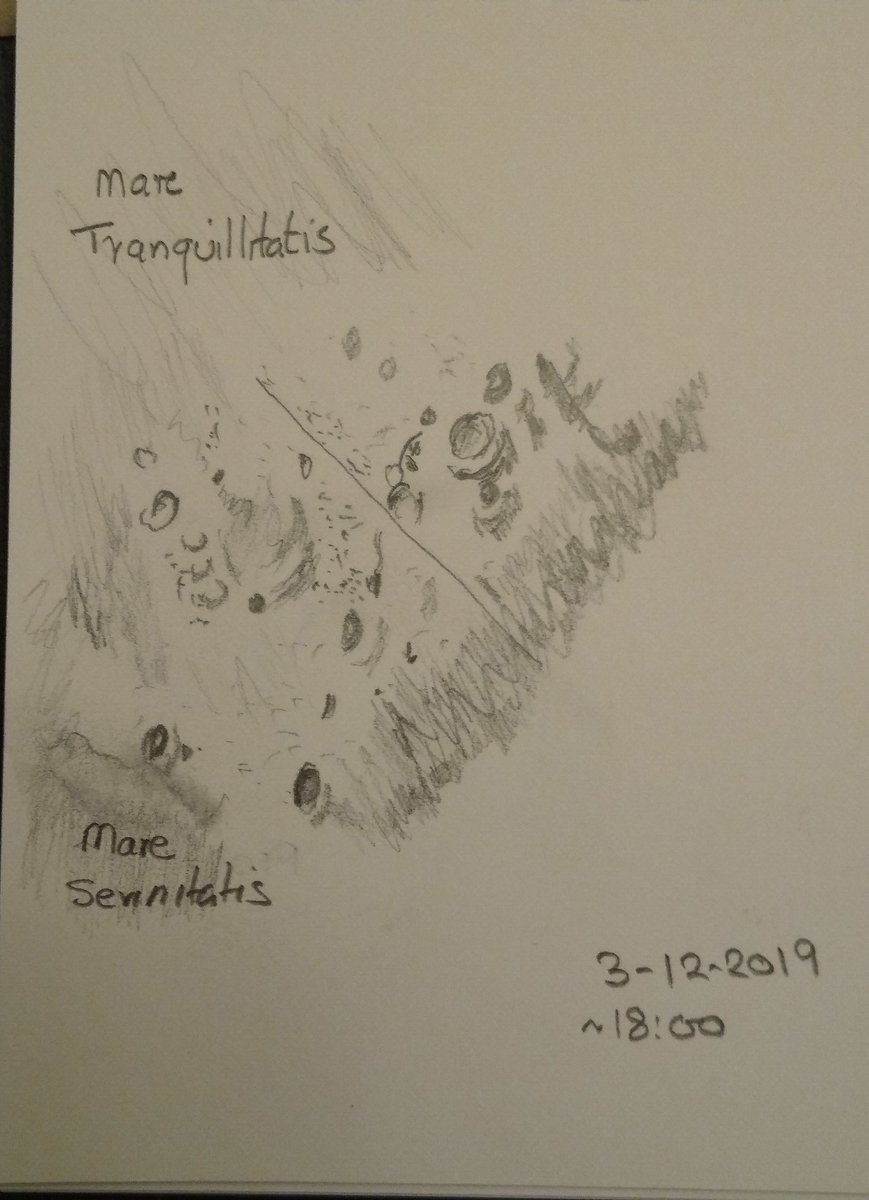 Mare
Tranquillitatis
Mare
Serinitatis
3-12-2019
~18:00